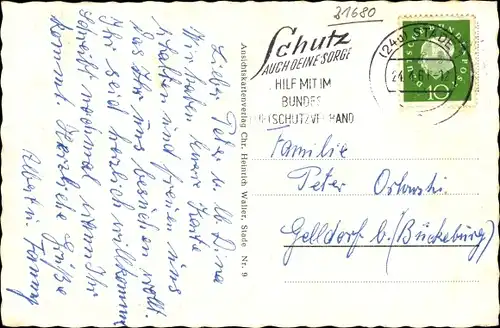 31680
Schutz
AUCH DEINE SORGE
HILF MIT IM
BUNDES
LUFTSCHUTZVERBAND
(24a) STADE
DEUTSCHE BUNDESPOST
10
Familie
Peter Orlowski.
Gelldorf b. (Bückeburg)
Ansichtskartenverlag Chr. Heinrich Waller, Stade Nr. 9
Lieber Peter u. lb.
Wir haben Eure Karte
erhalten und freuen uns
das Ihr uns besuchen wollt.
Ihr seid herzlich willkommen
Schreibt nochmal wann Ihr
kommt. Herzliche Grüße
Albert u. Fanny